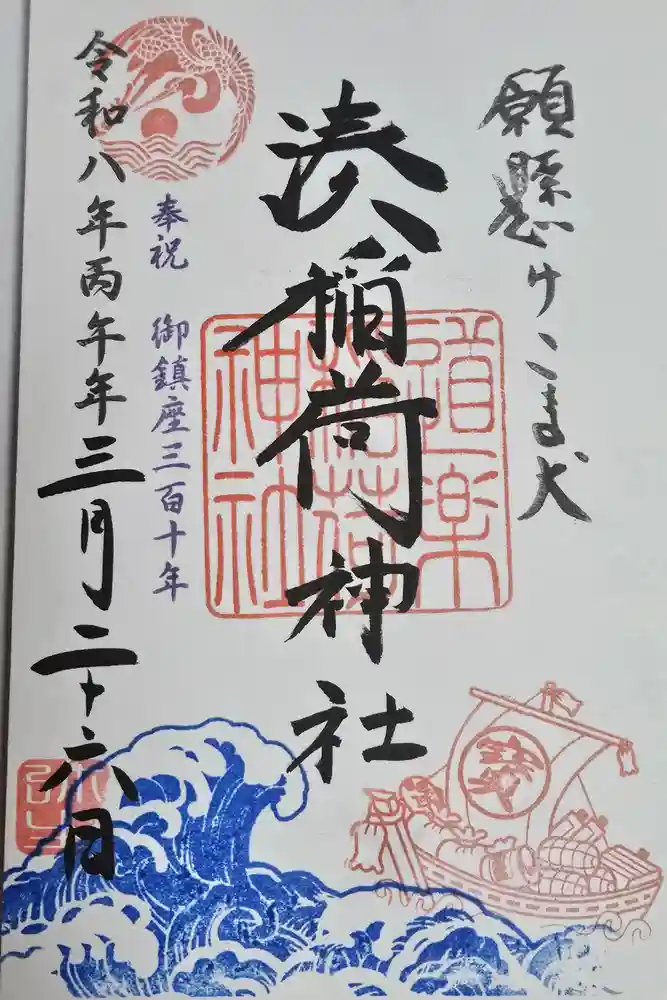 願懸けこま犬
湊稲荷神社
道楽稲荷神社
奉祝 御鎮座三百十年
令和八年丙午年三月二十六日